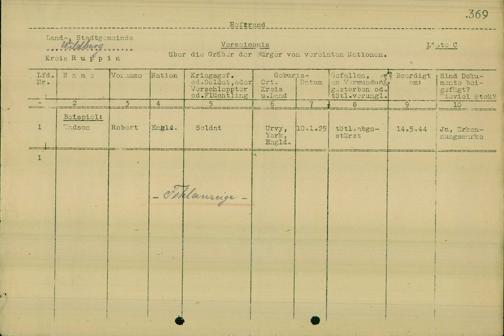 369
Heftrand
Land-, Stadtgemeinde
Wildberg
Kreis Ruppin
Verzeichnis
Liste C
über die Gräber der Bürger von vereinten Nationen.
Lfd. Nr. Name Vorname Nation Kriegsgef. od.Soldat,oder Verschleppter od.Flüchtling Geburts- Ort, Kreis u.Land Datum Gefallen, an Verwundung gestorben od. tötl.verungl. Beerdigt am: Sind Doku- mente bei- gefügt?
1 2 3 4 5 6 7 8 9 10
Beispiel:
1 Hudson Robert Engld. Soldat Urvy, York, Engld. 10.1.25 tötl.abge- stürzt 14.5.44 Ja, Erken- nungsmarke
1
- Fehlanzeige -